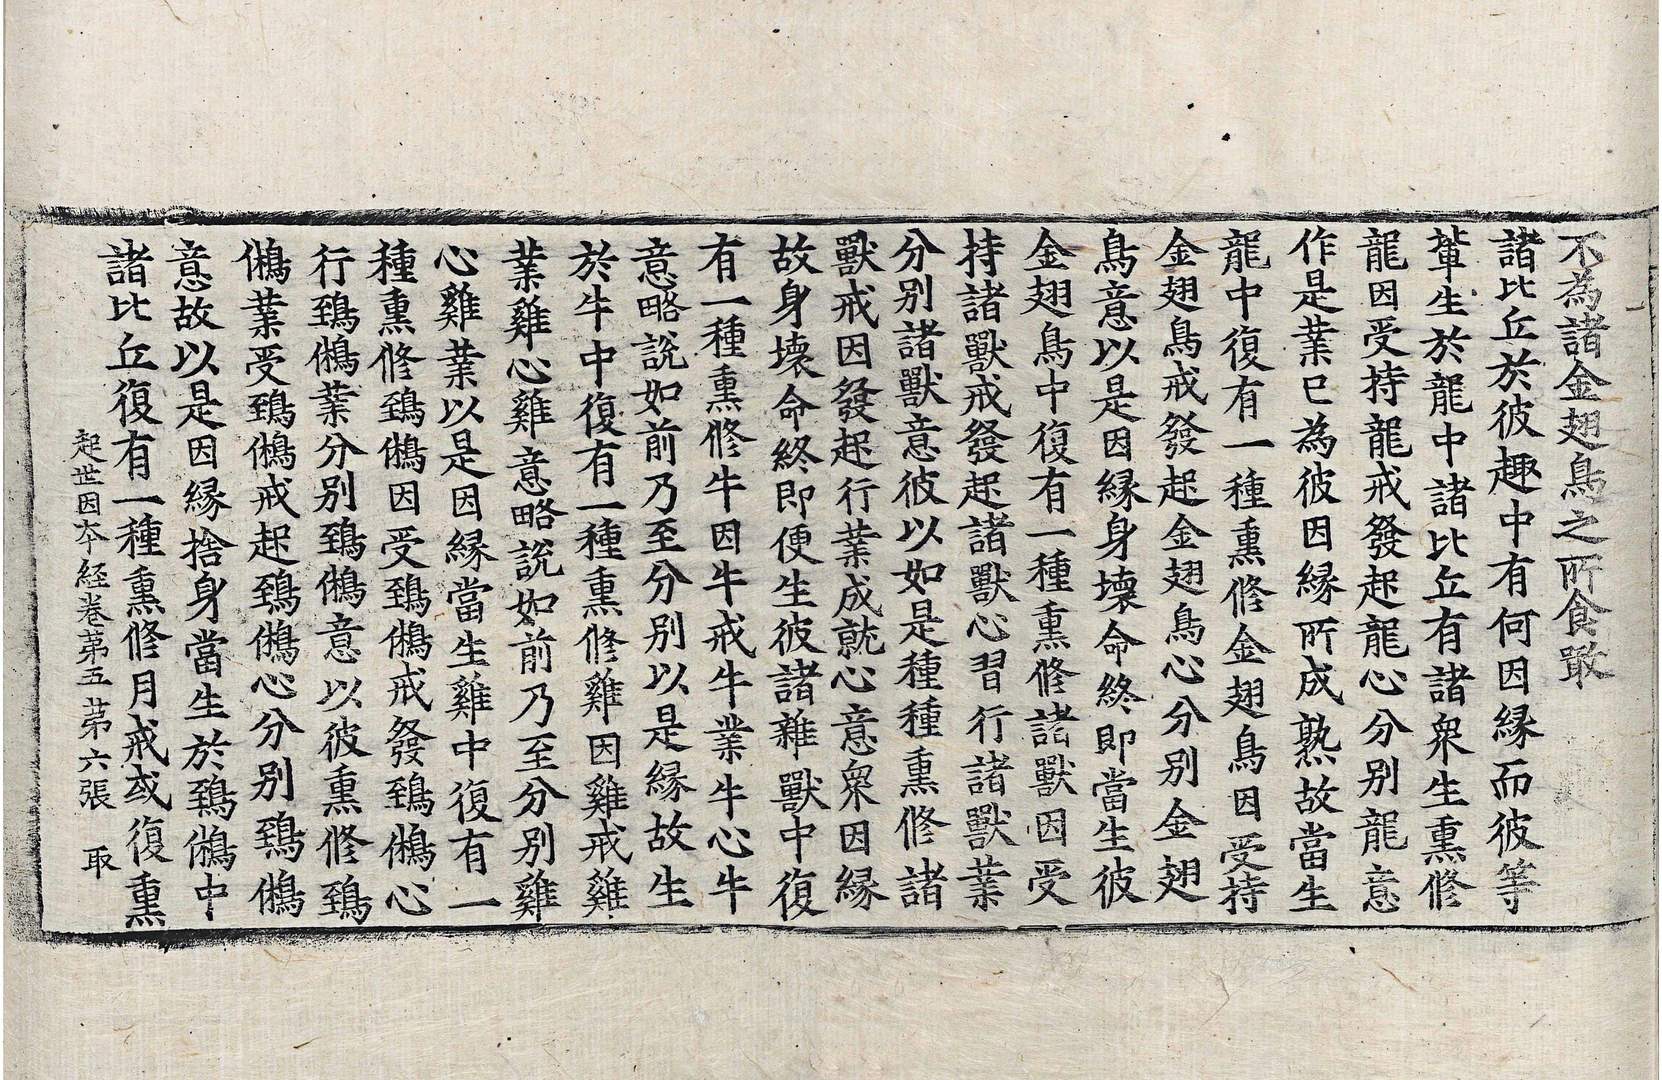 不為諸金翅鳥之所食噉
諸比丘於彼趣中有何因縁而彼等
輩生於龍中諸比丘有諸衆生熏修
龍因受持龍戒發起龍心分別龍意
作是業已為彼因縁所成熟故當生
龍中復有一種熏修金翅鳥因受持
金翅鳥戒發起金翅鳥心分別金翅
鳥意以是因縁身壞命終即當生彼
金翅鳥中復有一種熏修諸獸因受
持諸獸戒發起諸獸心習行諸獸業
分別諸獸意彼以如是種種熏修諸
獸戒因發起行業成就心意衆因縁
故身壞命終即便生彼諸雜獸中復
有一種熏修牛因牛戒牛業牛心牛
意略說如前乃至分別以是縁故生
於牛中復有一種熏修雞因雞戒雞
業雞心雞意略說如前乃至分別雞
心雞業以是因縁當生雞中復有一
種熏修鵄鵂因受鵄鵂戒發鵄鵂心
行鵄鵂業分別鵄鵂意以彼熏修鵄
鵂業受鵄鵂戒起鵄鵂心分別鵄鵂
意故以是因縁捨身當生於鵄鵂中
諸比丘復有一種熏修月戒或復熏
起世因夲經卷苐五　苐六張　取